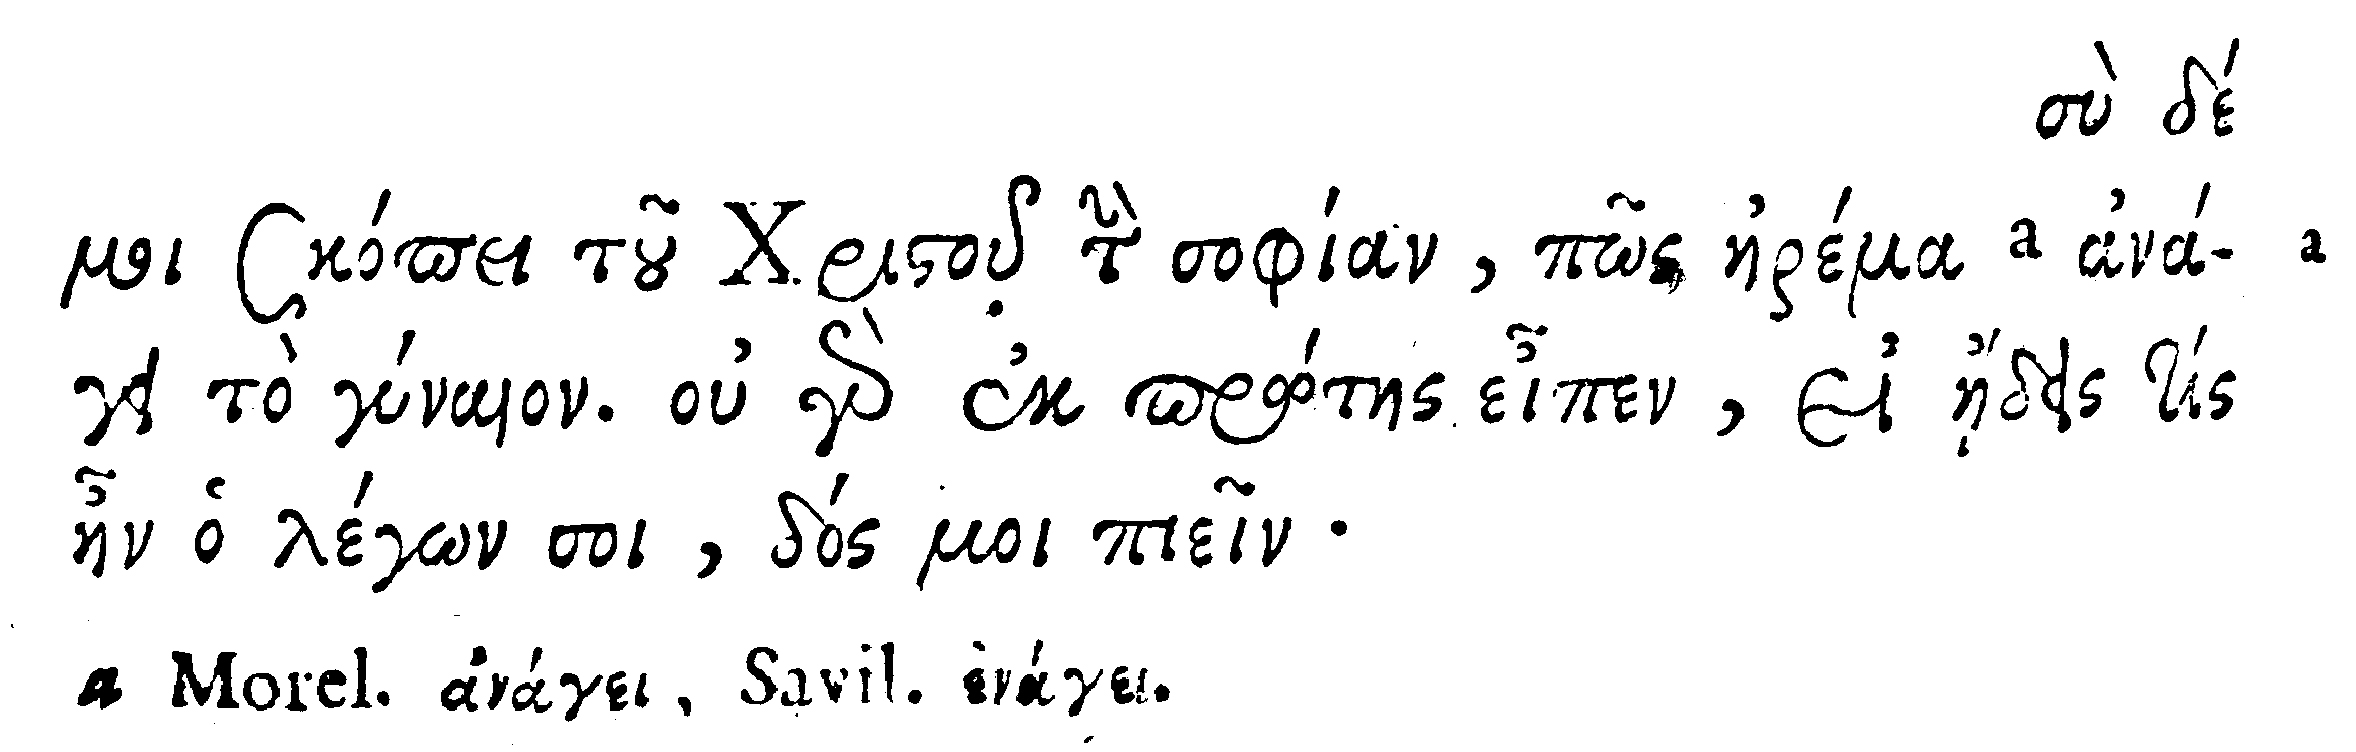 σὺ δέ
μοι σκόπει τοῦ Χριστοῦ τὴν σοφίαν, πῶς ἠρέμα a ἀνά- a
γει τὸ γύναιον. οὐ γὰρ ἐκ πρώτης εἶπεν, εἰ ᾔδεις τίς
ἦν ὁ λέγων σοι, δός μοι πιεῖν·
a Morel. ἀνάγει, Savil. ἐνάγει.